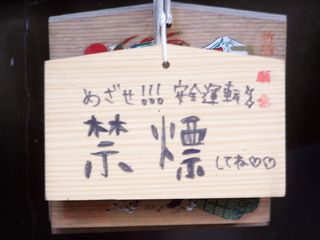 めざせ!!! 安全運転を
禁煙してね♡♡
願